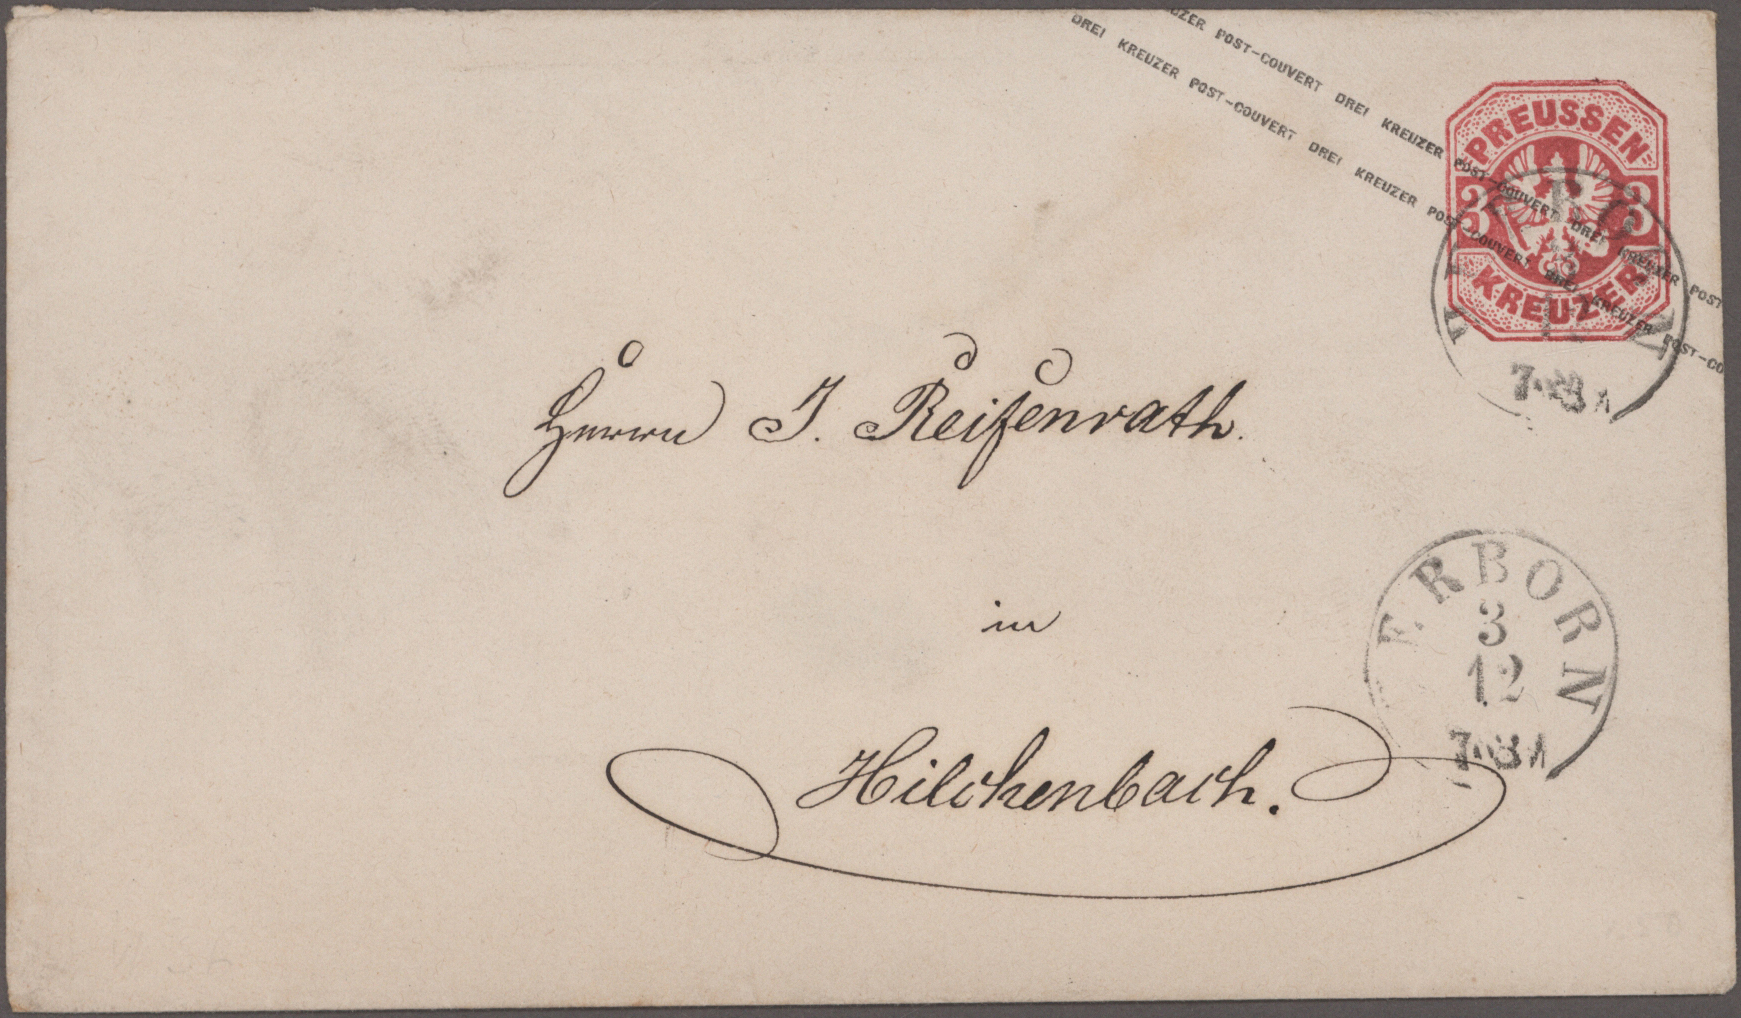 UZER POST-COUVERT DREI KREUZER POST-COUVERT DREI KREUZER POST
DREI KREUZER POST-COUVERT DREI KREUZER POST-COUVERT DREI KREUZER POST-CO
PREUSSEN
3 3
KREUZER
3
12
Herrn J. Reifenrath.
in
Hilchenbach.
ERBORN
3
12